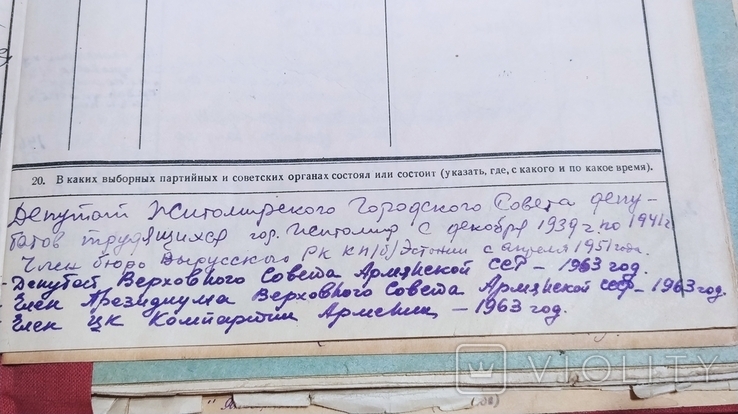 20. В каких выборных партийных и советских органах состоял или состоит (указать, где, с какого и по какое время).
Депутат Житомирского Городского Совета депу-
татов трудящихся гор. Житомир с декабря 1939 г. по 1941 г.
Член бюро Вырусского РК КП/б/ Эстонии с апреля 1951 года.
- Депутат Верховного Совета Армянской ССР - 1963 год.
- Член Президиума Верховного Совета Армянской ССР - 1963 год.
Член ЦК Компартии Армении - 1963 год.
VIOLITY